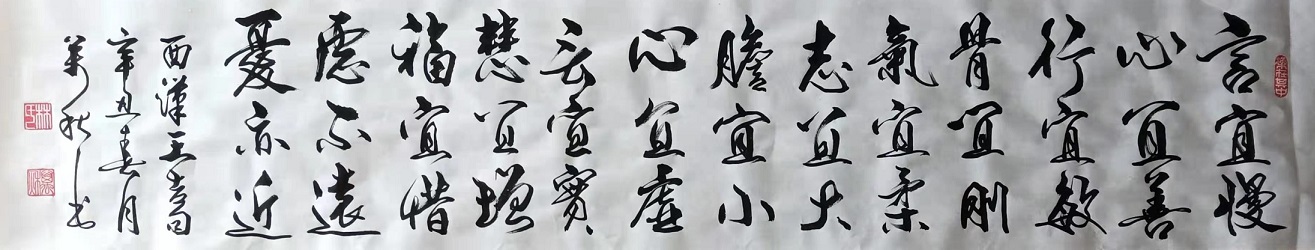 言宜慢
心宜善
行宜敏
骨宜刚
氣宜柔
志宜大
膽宜小
心宜虚
言宜實
慧宜增
福宜惜
慮不遠
憂亦近
西漢王吉句
辛丑春月
萬秋书